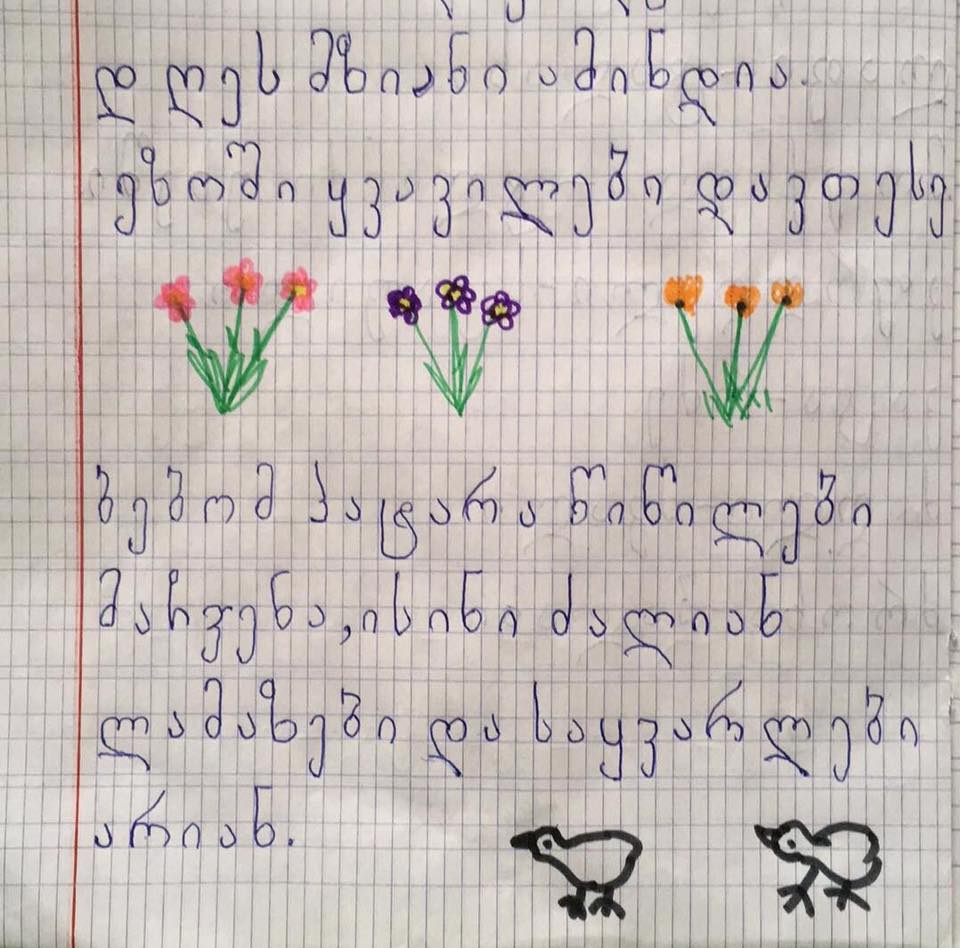 დღეს მზიანი ამინდია.
ეზოში ყვავილები დავთესე
ბებომ პატარა წიწილები
მაჩვენა, ისინი ძალიან
ლამაზები და საყვარლები
არიან.